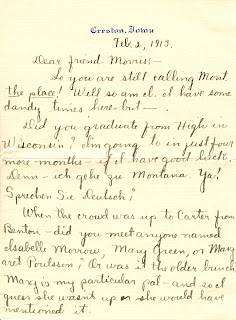 Creston, Iowa
Feb. 2, 1913.
Dear friend Morris:-
So you are still calling Mont.
the place! Well so am I. I have some
dandy times here - but - .
Did you graduate from High in
Wisconsin? I'm going to in just four
more months - if I have good luck.
Denn - ich gehe zu Montana. Ya!
Sprechen Sie Deutsch?
When the crowd was up to Carter from
Benton - did you meet anyone named
Isabelle Morrow, Mary Green, or Marg
aret Poulsson? Or was it the older bunch
Marg is my particular pal - and so I
guess she wasn't up or she would have
mentioned it.